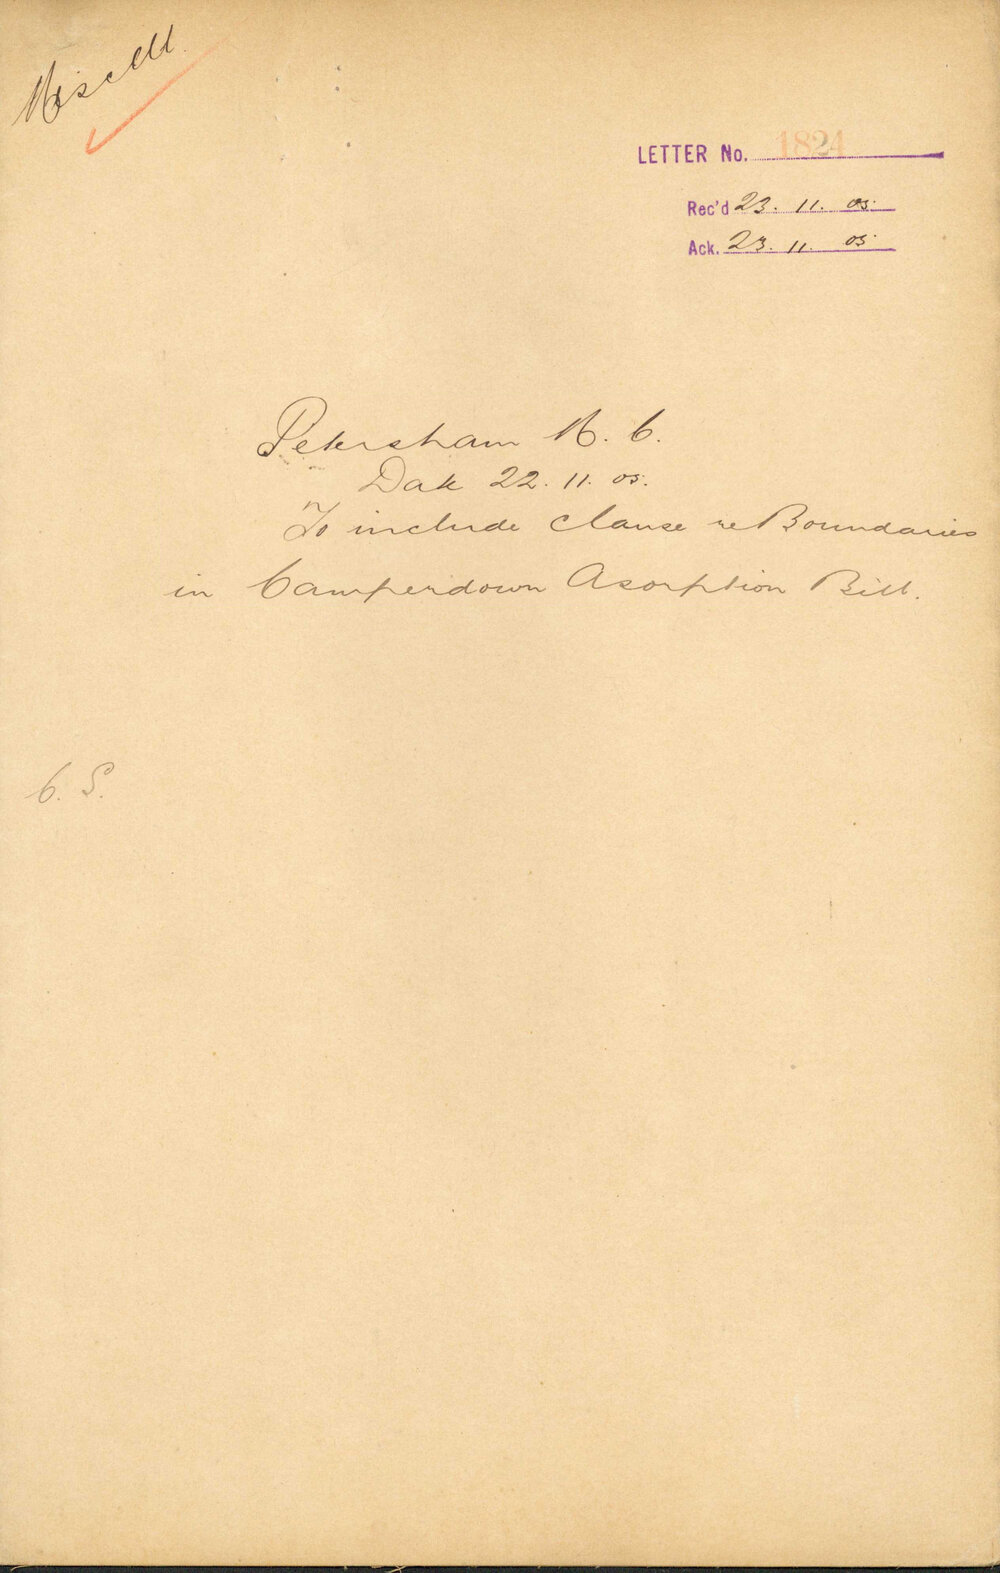 Miscell.
LETTER No. 1824
Rec'd 23. 11. 05.
Ack. 23. 11. 05.
Petersham M. C.
Date 22. 11. 05.
To include clause re Boundaries
in Camperdown Asorption Bill.
C. S.